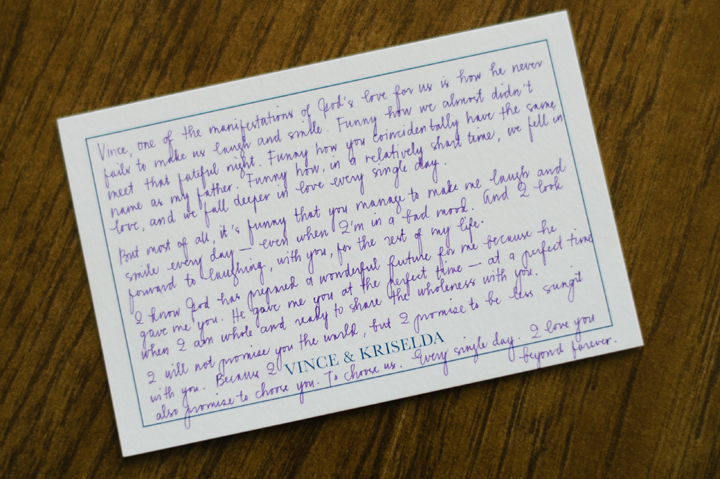 Vince, one of the manifestations of God's love for us is how he never
fails to make us laugh and smile. Funny how we almost didn't
meet that fateful night. Funny how you coincidentally have the same
name as my father. Funny how, in a relatively short time, we fell in
love, and we fall deeper in love every single day.
But most of all, it's funny that you manage to make me laugh and
smile every day — even when I'm in a bad mood. And I look
forward to laughing, with you, for the rest of my life.
I know God has prepared a wonderful future for me because he
gave me you. He gave me you at the perfect time — at a perfect time
when I am whole and ready to share the wholeness with you.
I will not promise you the world, but I promise to be less sungit
with you. Because I
VINCE & KRISELDA
also promise to choose you. To choose us. Every single day. I love you
beyond forever.